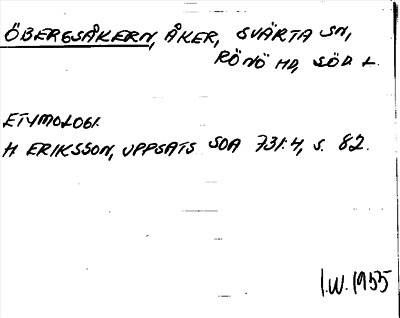 ÖBERGSÅKERN, ÅKER, SVÄRTA SN,
RÖNÖ HD, SÖD L.
ETYMOLOGI.
H ERIKSSON, UPPSATS SOA 731:4, S. 82.
I.W. 1955